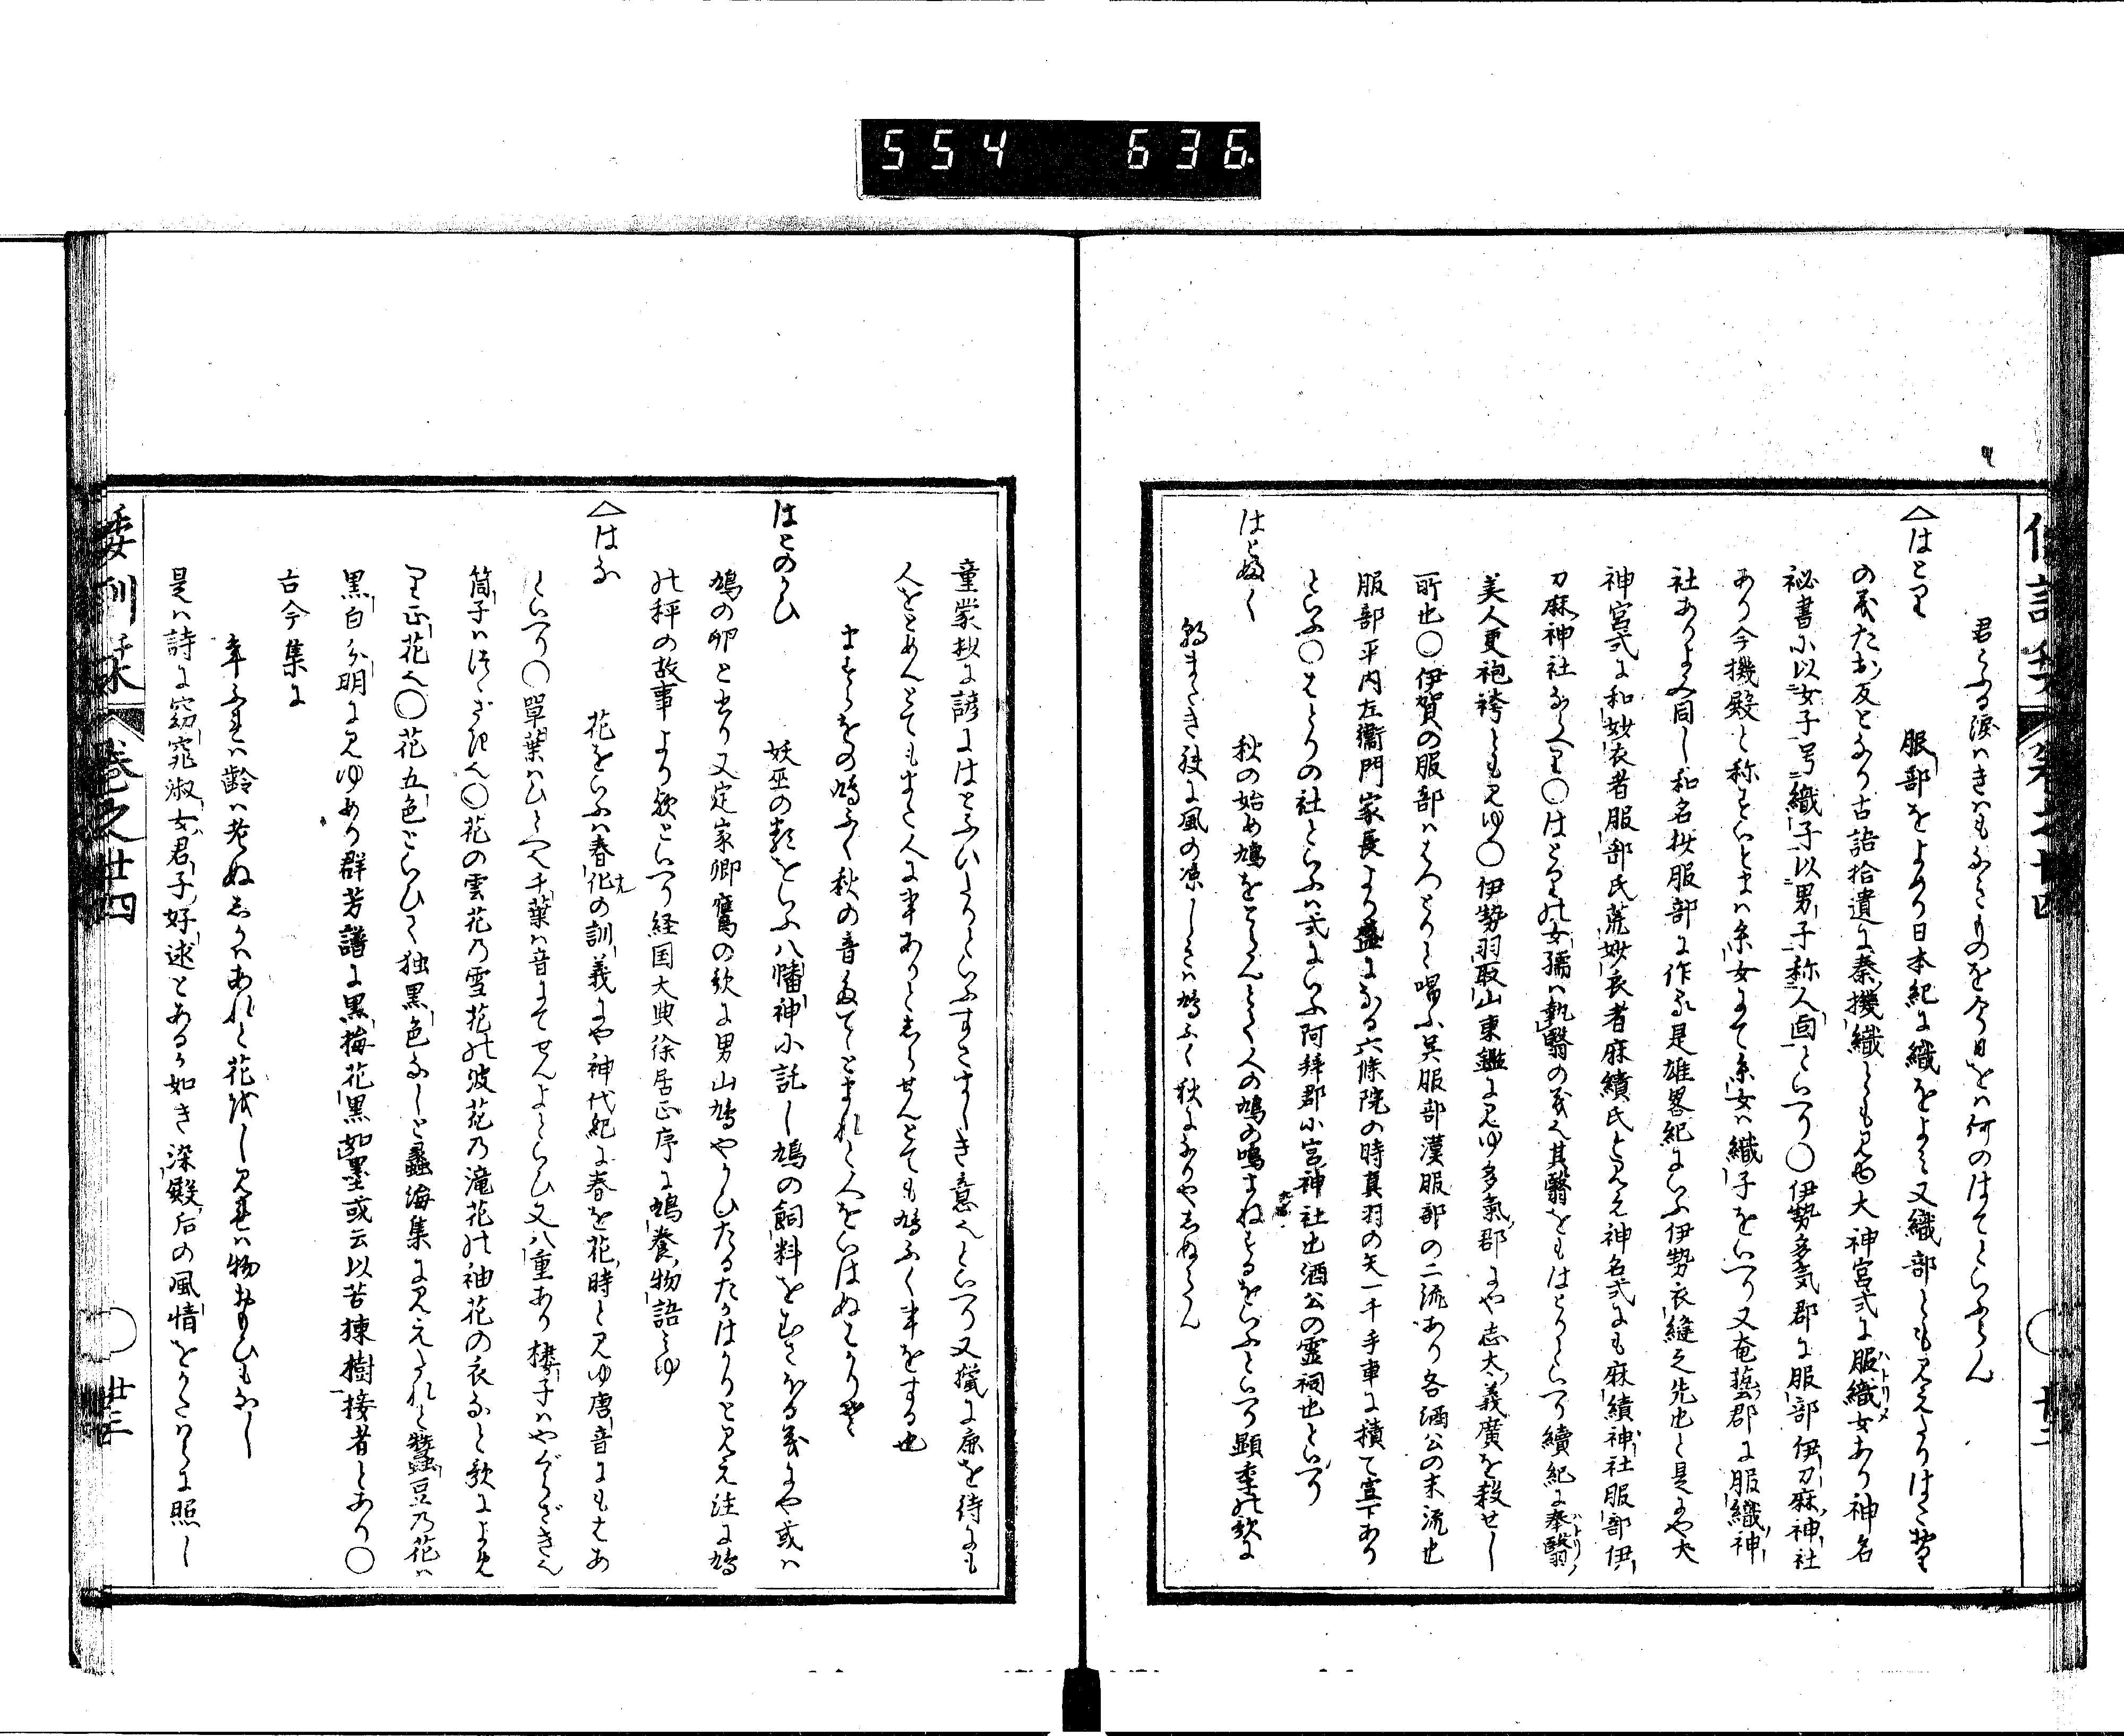 554 636
君こふる涙ハきハもふちものを今日をハ何のはてといふらん
△はとり 服部をよめり日本紀に織をよミ又織部ともみえたりはたおり
の義たお反となり古語拾遺に秦機織ともみゆ大神宮式に服織女あり神名
祕書小以女子号織子以男子称人面といへり○伊勢多気郡に服部伊刀麻神社
あり今機殿と称すいとまハ糸女にて糸女ハ織子をいへり又奄藝郡に服織神
社ありよみ同し和名抄服部に作る是雄畧紀にいふ伊勢衣縫之先也と是にや大
神宮式に和妙衣者服部氏荒妙衣者麻績氏と見え神名式にも麻績神社服部伊
刀麻神社ならへり○はとりの女孺ハ執翳の義也其翳をもはとりといへり續紀に奉翳
美人更袍袴ともみゆ○伊勢羽取山東鑑にみゆ多氣郡にや志太義廣を殺せし
所也○伊賀の服部ハはつとりと唱ふ呉服部漢服部の二流あり各酒公の末流也
服部平内左衞門家長より盛になる六條院の時真羽の矢一千手車に積て宣下あり
といふ○はとりの社といふハ式にいふ阿拜郡小宮神社也酒公の霊祠也といへり
はとふく 秋の始め鳩をとらんとて人の鳩の鳴まねするをいふといへり顕季の歌に
朝またき袂に風の凉しきハ鳩ふく秋になりやしぬらん
童蒙抄に諺にはとふいたりといふすさましき意也といへり又獵に鹿を待にも
人をとめんとてもまた人に事ありとしらせんとても鳩ふく事をする也
ますらをの鳩ふく秋の音たてゝとまれと人をいはぬはかりそ
はとのかひ 妖巫の類をいふ八幡神小託し鳩の飼料をむさほる義にや或ハ
鳩の卵とせり又定家卿鷹の歌に男山鳩やかひたるたかはかりと見え注に鳩
の秤の故事より歟といへり経国大典徐居正序に鳩養物語ミゆ
△はな 花をいふハ春化の訓義にや神代紀に春を花時とみゆ唐音にもはあ
といへり○單葉ハひとへ千葉ハ音にてせんよといひ又八重あり棣子ハやぐらざき也
筒子ハほゝざき也○花の雲花の雪花の波花の滝花の袖花の衣なと歌によめ
り正花也○花五色といひて独黒色なしと蠡海集に見えたれと蠶豆の花ハ
黒白分明にみゆあり群芳譜に黒梅花黒如墨或云以苦楝樹接者とあり○
古今集に
年ふれハ齢ハ老ぬしかハあれと花をし見れハ物おもひもなし
是ハ詩に窈窕淑女君子好逑とあるか如き深殿后の風情をかたハらに照し
倭訓栞 巻之廿四 廿三